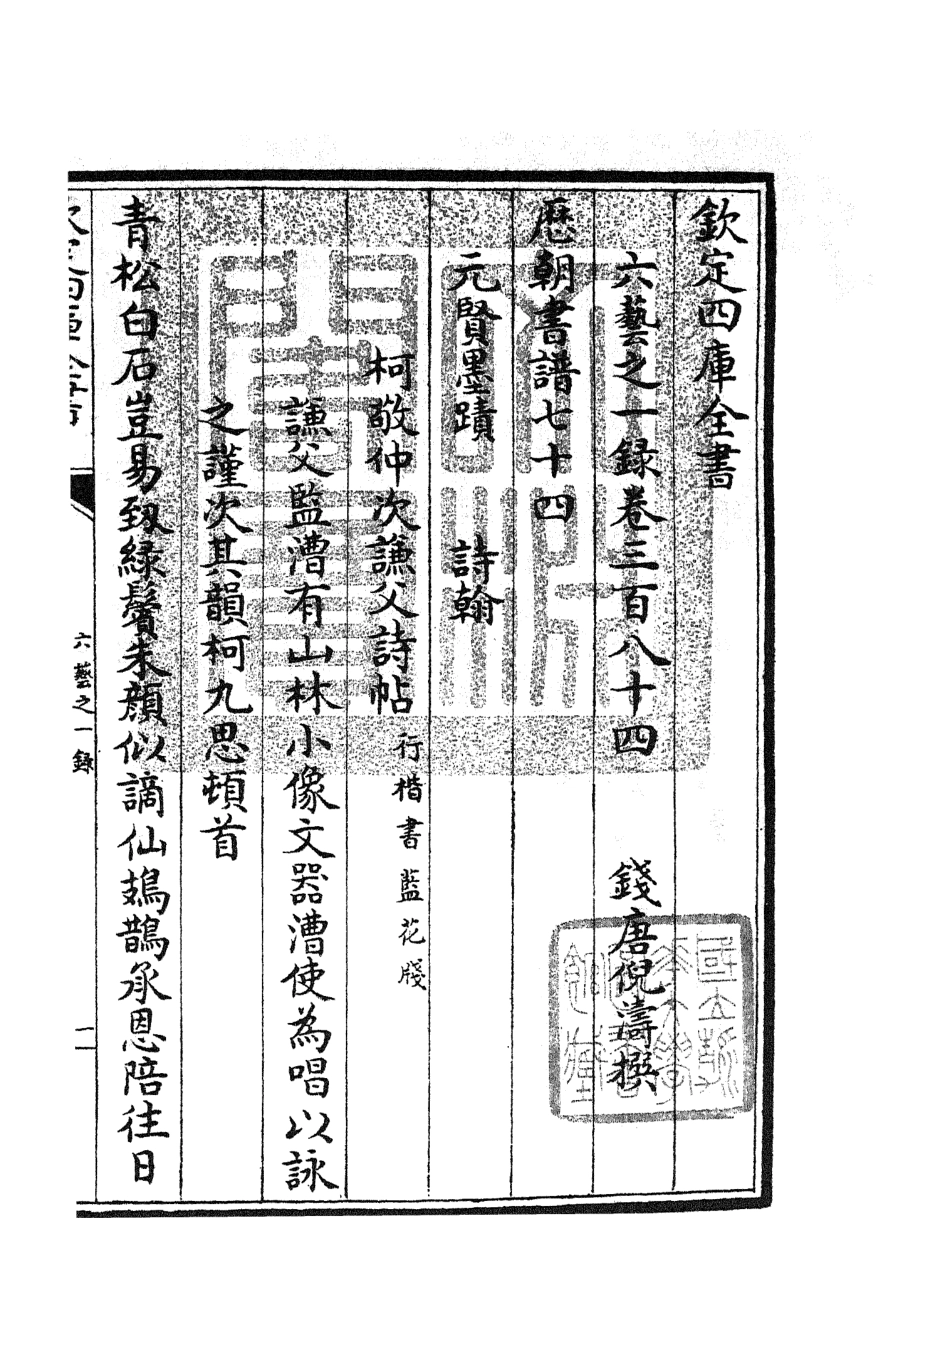 欽定四庫全書
六藝之一録卷三百八十四
錢唐倪濤撰
厯朝書譜七十四
元賢墨蹟 詩翰
柯敬仲次謙父詩帖 行楷書藍花牋
謙父監漕有山林小像文器漕使為唱以詠
之謹次其韻柯九思頓首
青松白石豈易致緑鬢朱顔似謫仙鳷鵲承恩陪往日
欽定四庫全書
六藝之一録
一